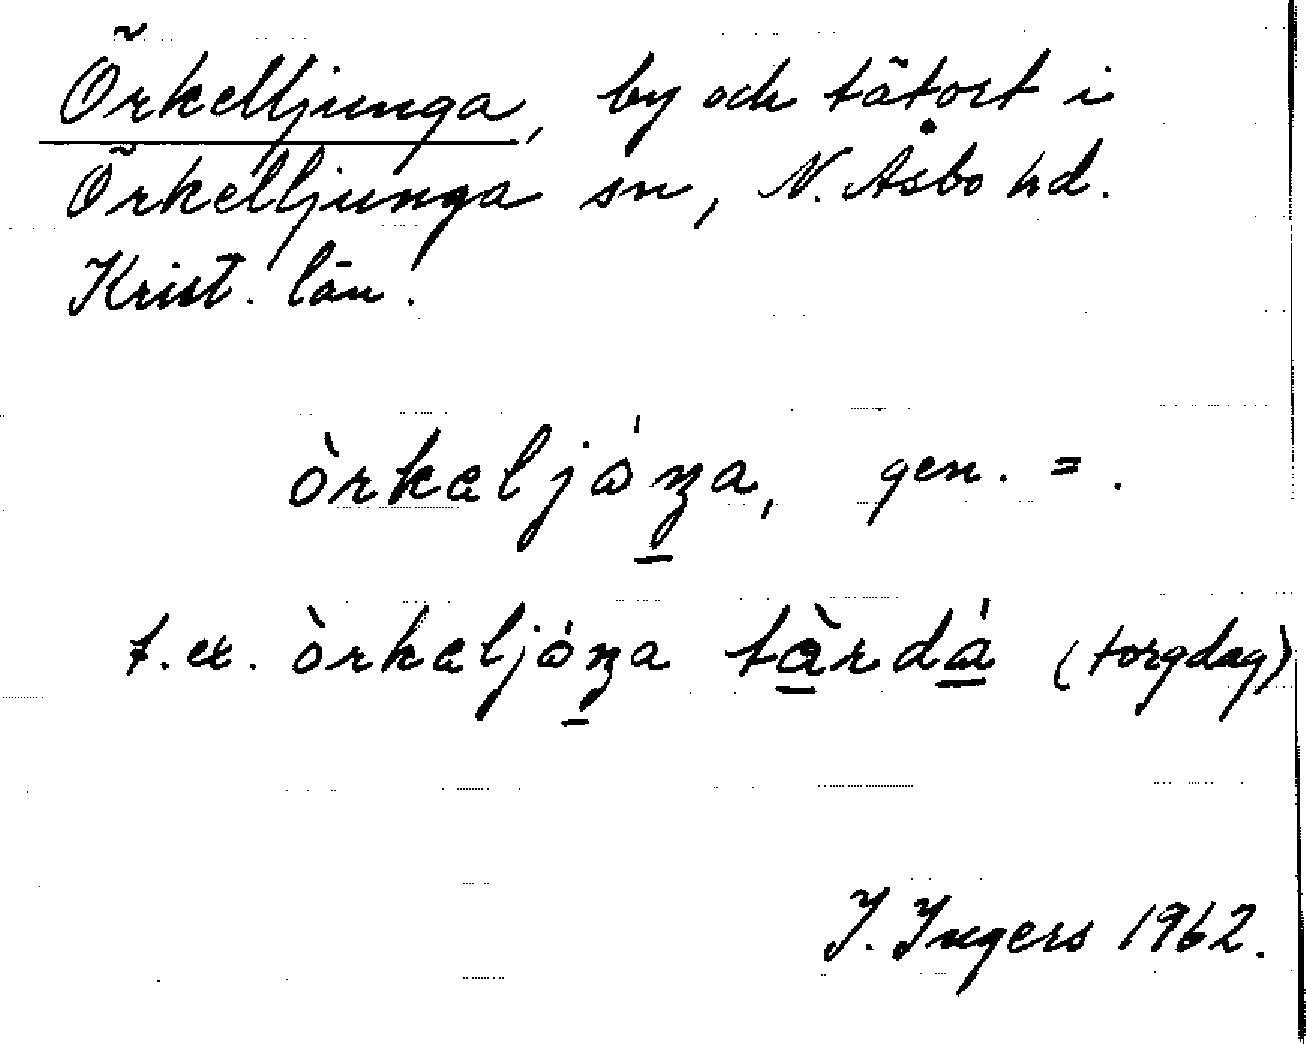 Örkelljunga, by och tätort i
Örkelljunga sn, N. Åsbo hd.
Krist. län.
òrkəljóŋa, gen. = .
t.ex. òrkəljóŋa tàrdá (torgdag)
I. Ingers 1962.